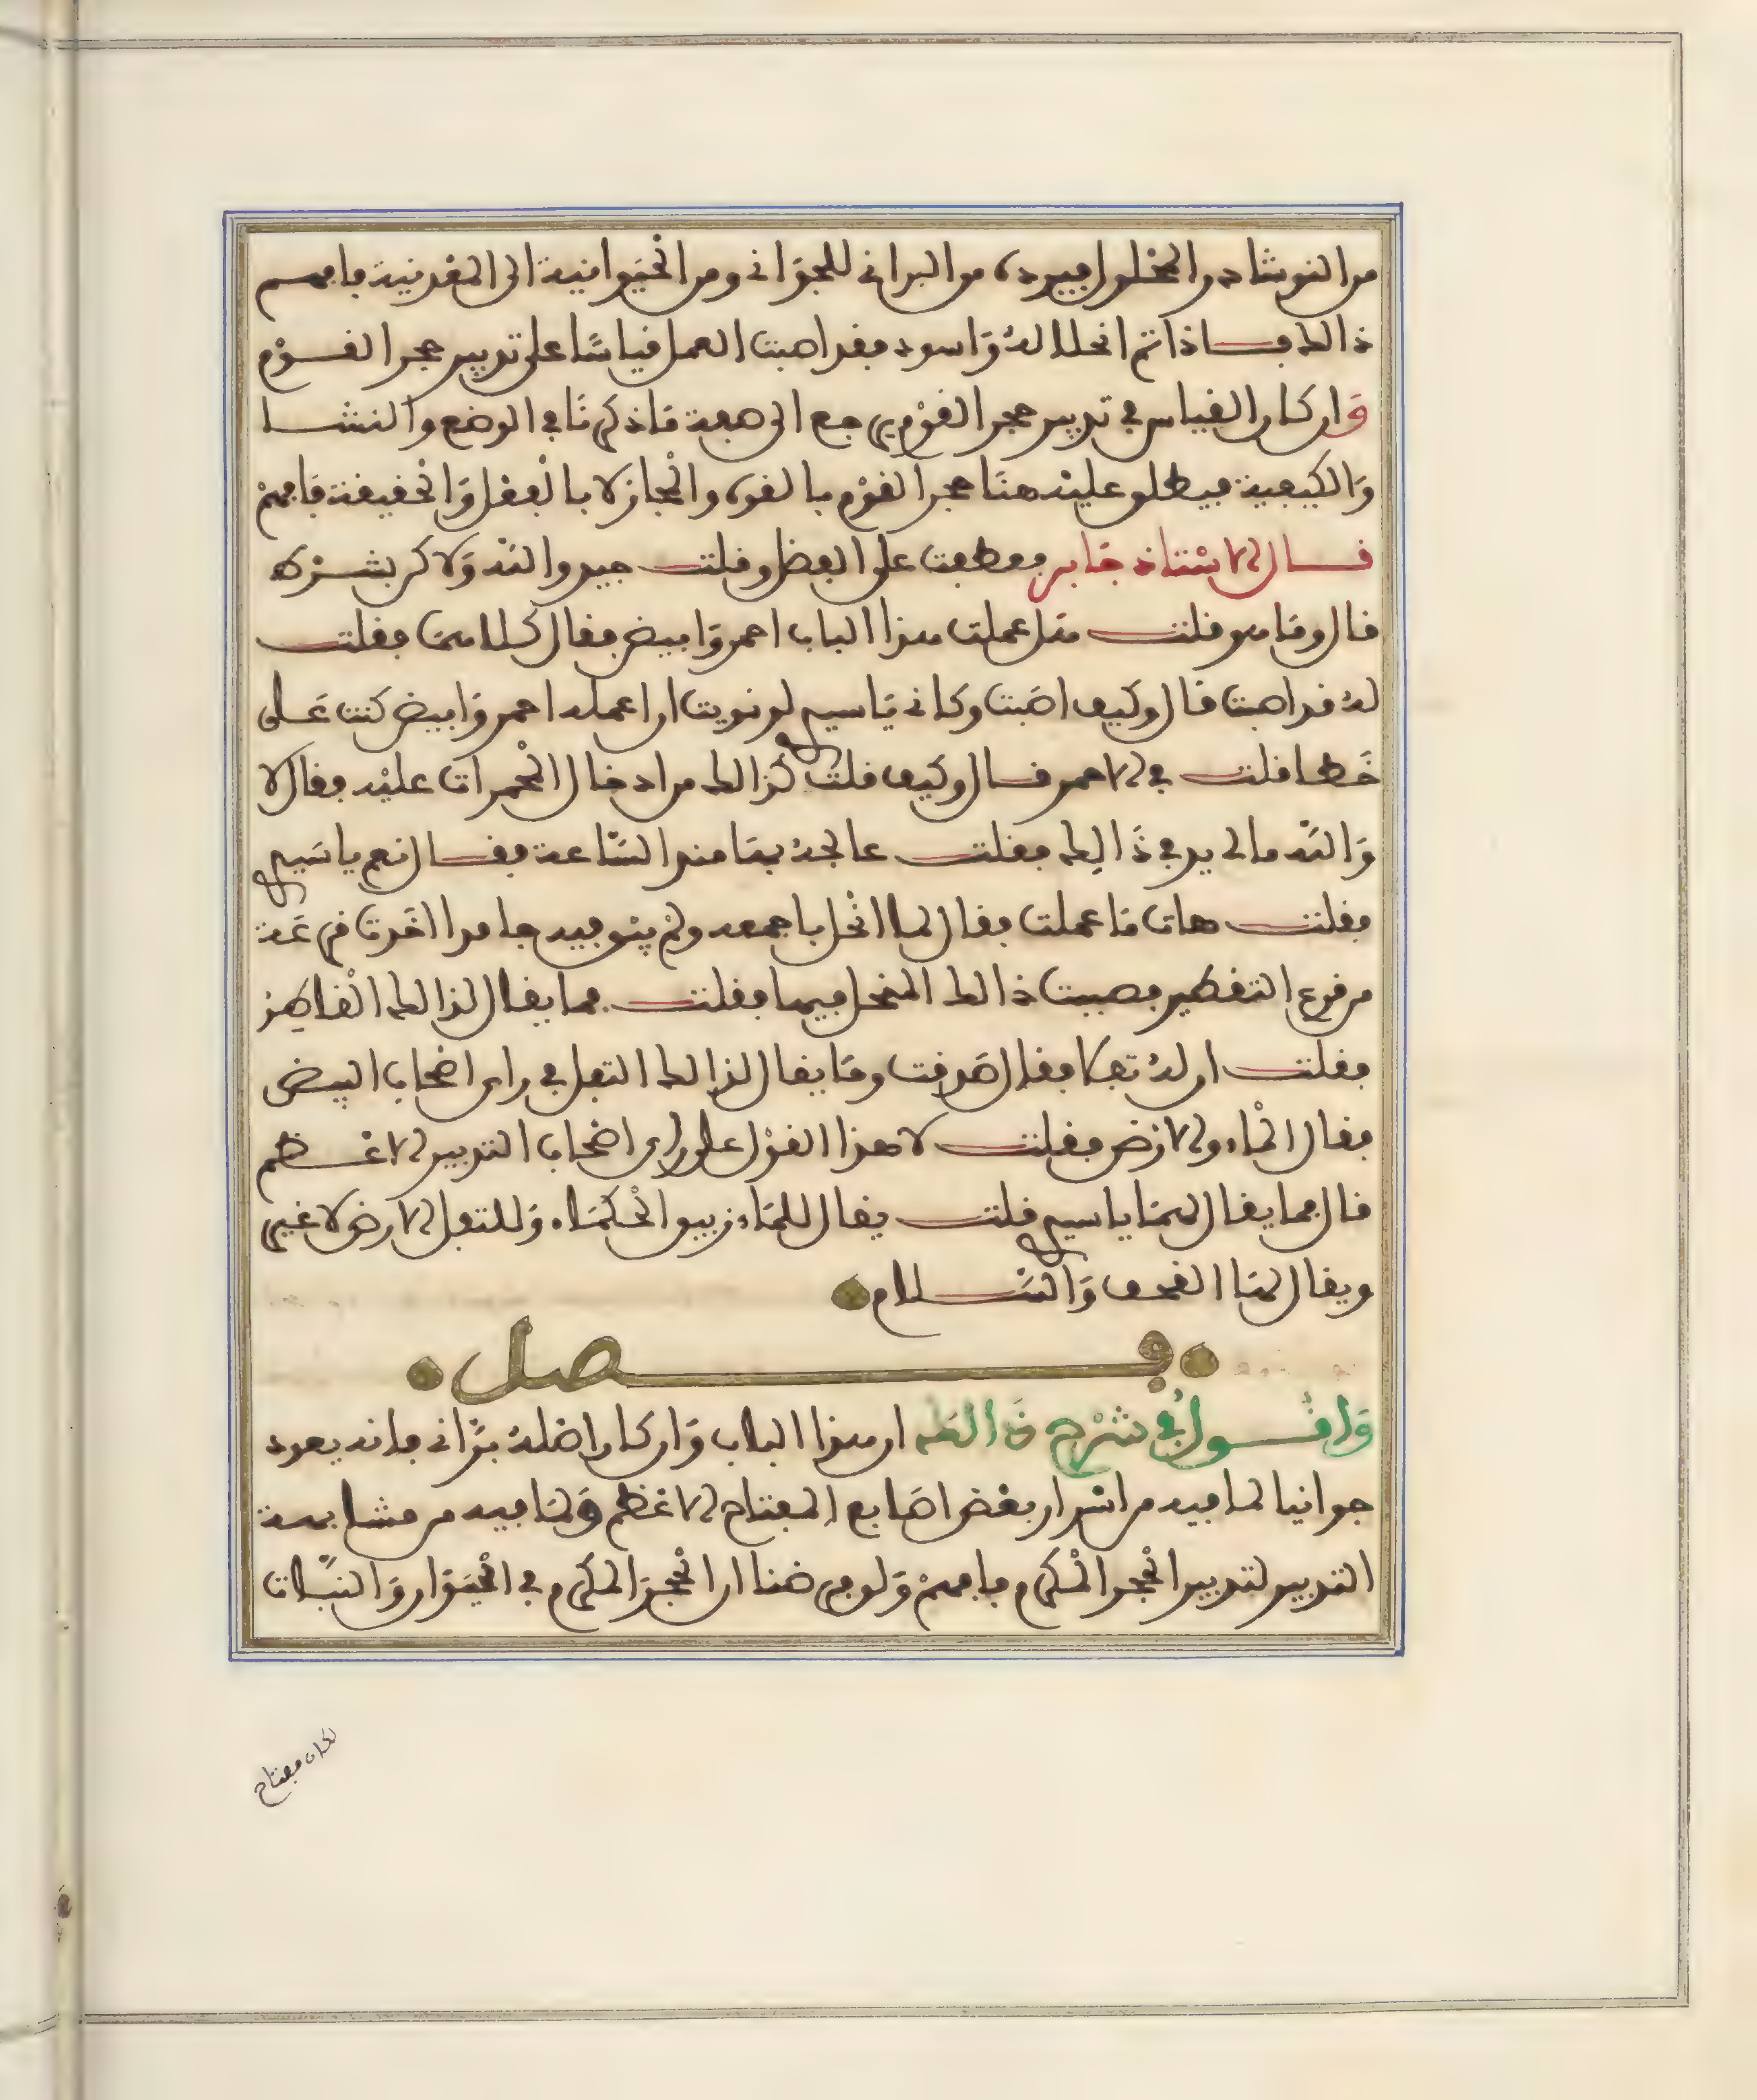 من النوشادر المحلول فيرده من البراني للجواني ومن الحيوانية الى المعدنية فافهم
ذالك فاذا تم انحلاله واسود فقد اصبت العمل قياسا على تدبير حجر القوم
وان كان القياس في تدبير حجر القوم يرجع الى صفة ما ذكرنا في الوضع والنشا
والكيفية فيطلق عليه هنا حجر القوم بالقوة والمجاز لا بالفعل والحقيقة فافهم
قال الاستاذ جابر فعطفت على الفضل وقلت جيد والله ولاكن بشرط
قال وما هو قلت مثل عملت هذا الباب احمر وابيض فقال كلاهما فقلت
له قد اصبت قال وكيف اصبت وكاني يا سيدي لو نويت ان اعمله احمر وابيض كنت على
خطا قلت في الاحمر قال وكيف قلت كذالك من ادخال المحمرات عليه فقال لا
والله مالي يد في ذالك فقلت عالجه بها منذ الساعة فقال نعم يا سيدي
فقلت هات ما عملت فقال لما انحل باجمعه ولم يبق فيه جامد اخذت قرعة
من قرع التقطير فصببت ذالك المنحل فيها فقلت فما يقال لذالك القاطر
فقلت ان له ثفلا فقال صدقت وما يقال لذالك الثفل في راي اصحاب البيض
فقال الماء والارض فقلت لا هذا القول على راي اصحاب التدبير الاعظم
قال فما يقال لهما يا سيدي قلت يقال للماء زيبق الحكماء وللثفل الارض لا غير
ويقال لها القحف والسلام
فصل
واقول في شرح ذالك ان هذا الباب وان كان اصله براني فانه يعود
جوانيا لما فيه من اسرار بعض اصابع المفتاح الاعظم ولما فيه من مشابهة
التدبير لتدبير الحجر المكرم فافهم ولو فرضنا ان الحجر المكرم في الحيوان والنبات
لكان مفتاح